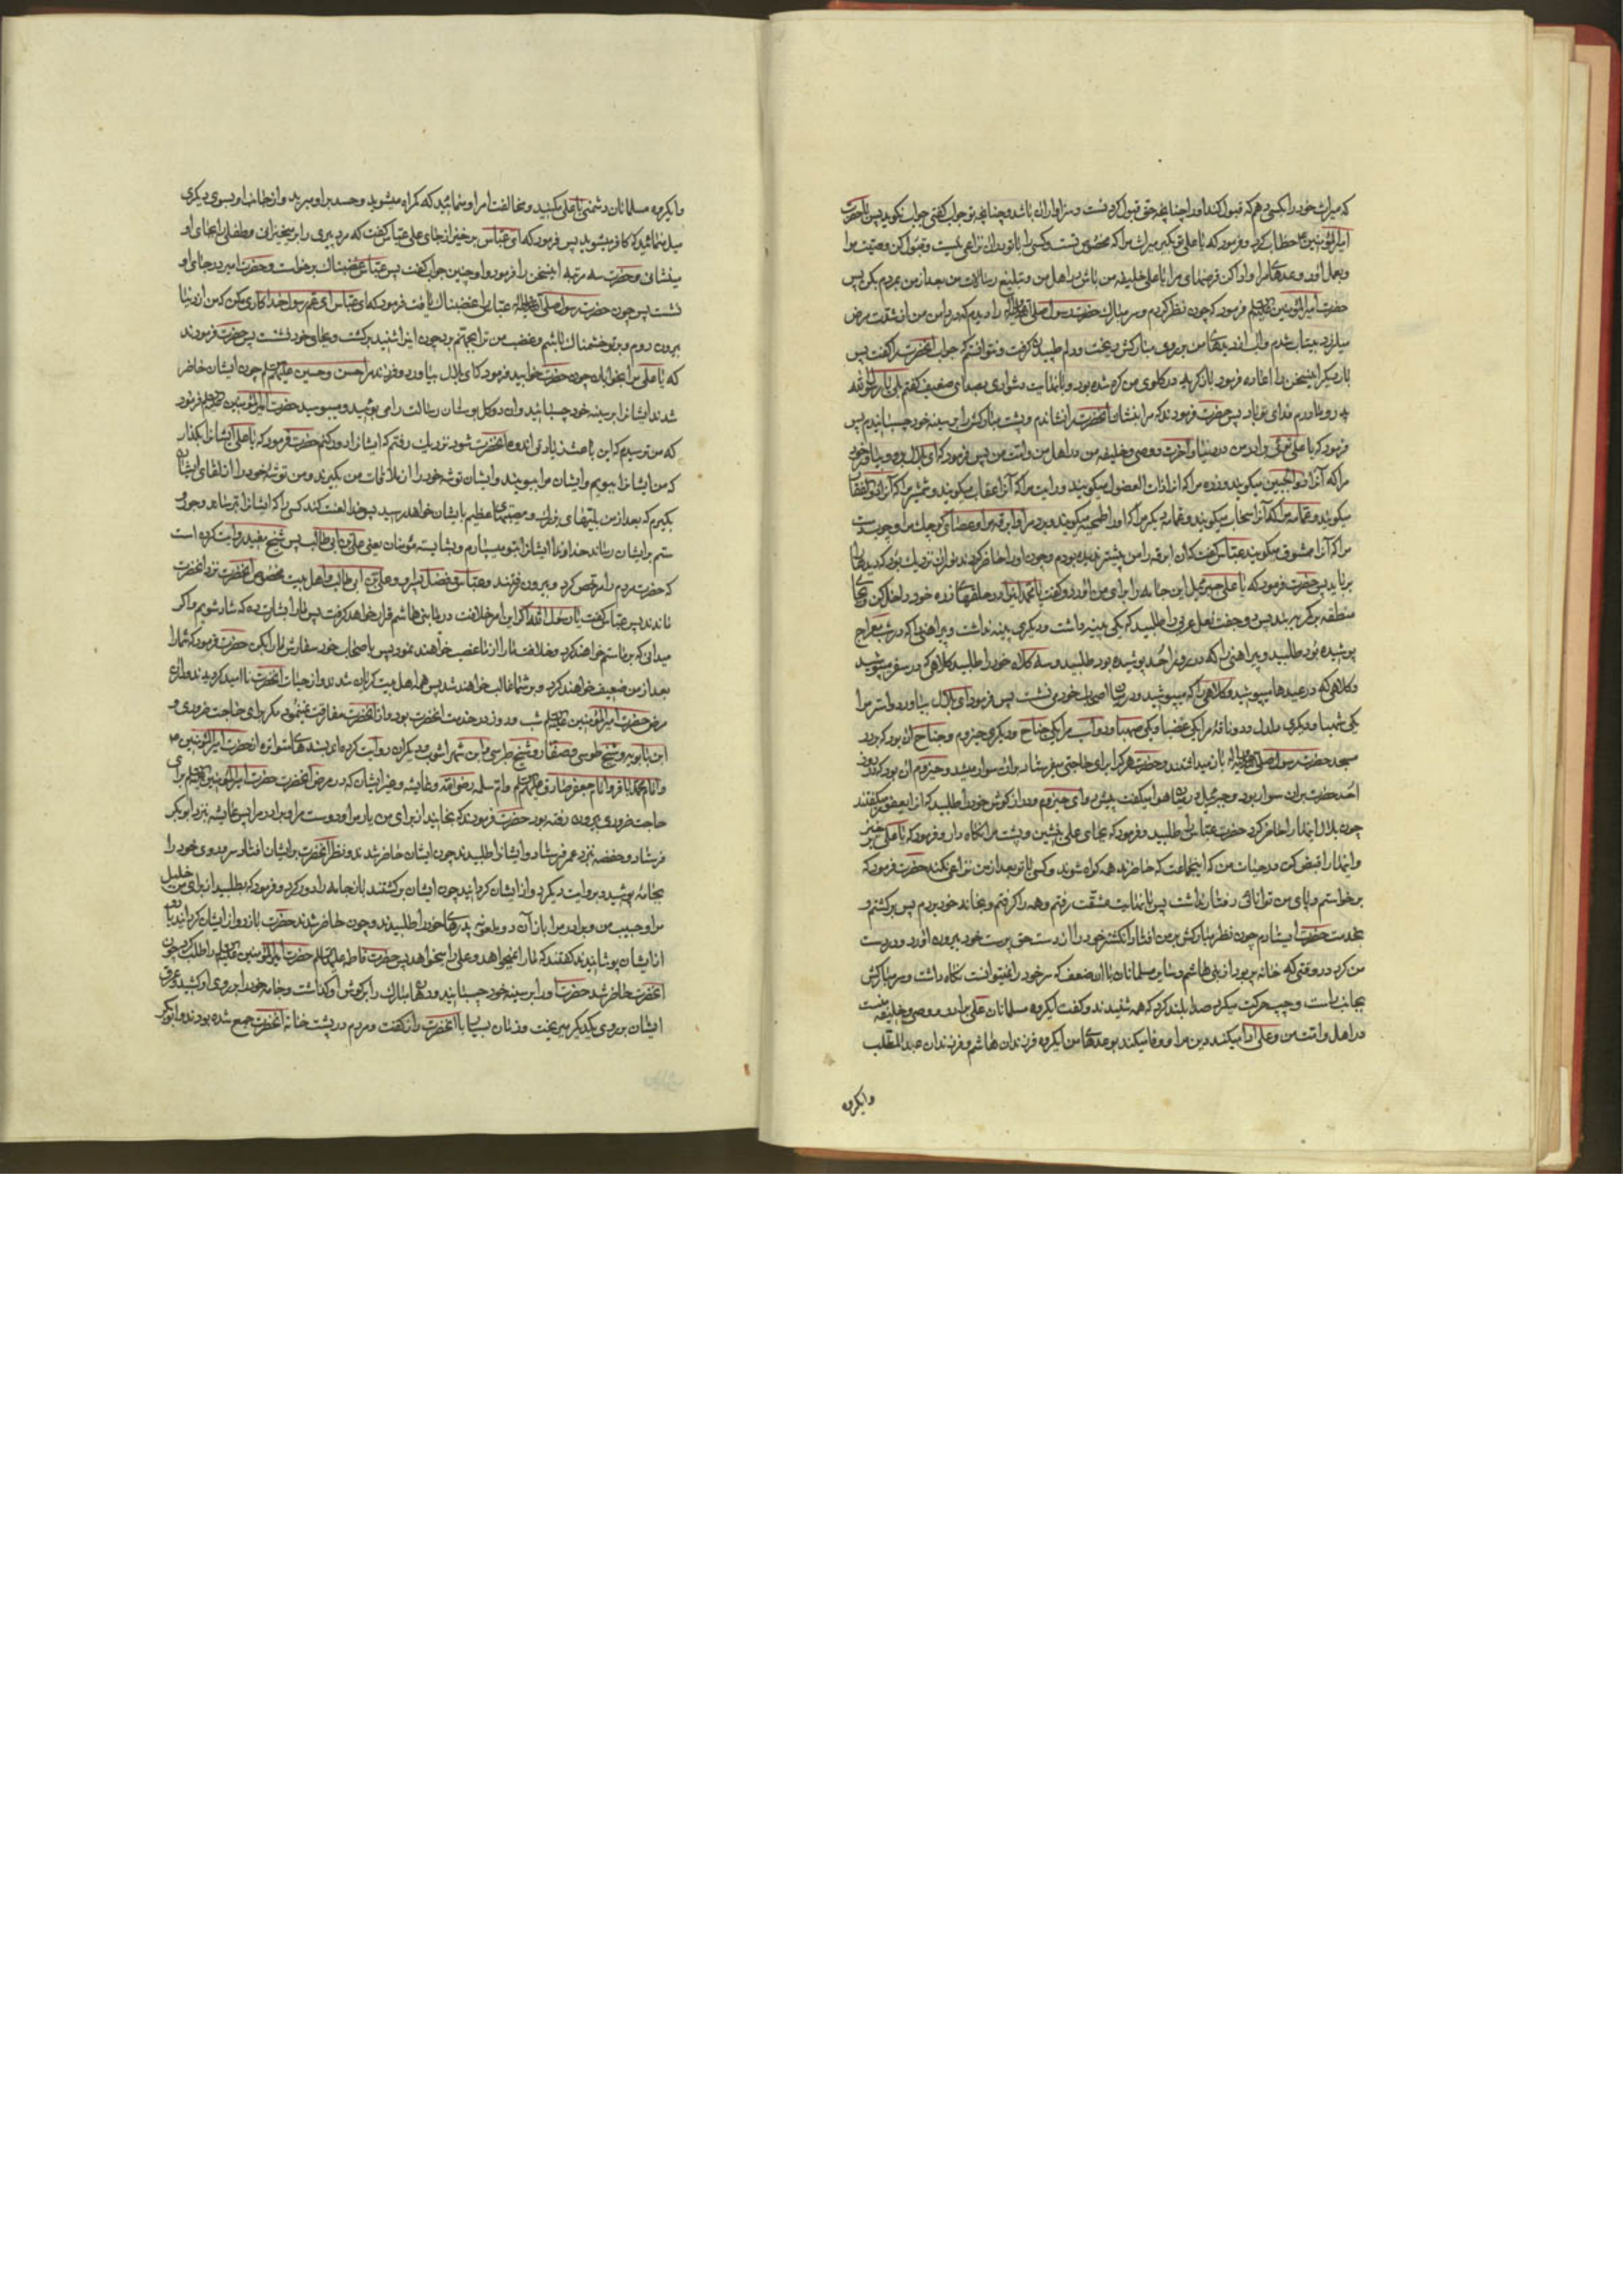 که میراث خود را بکسی دهم که قبول کند او را چنانچه حق قبول کردنست و سزاوار آن باشد و چنانچه تو جواب کفتی جواب نکوید پس با حضرت
امیرالمؤمنین ع خطاب کرد و فرمود که یا علی تو بکیر میراث مرا که مخصوص تست و کسی را با تو در آن نزاعی نیست و قبول کن وصیت مرا
و بعمل آور وعدهای مرا و ادا کن قرضهای مرا یا علی خلیفه من باش در اهل من و تبلیغ رسالات من بعد از من بمردم بکن پس
حضرت امیرالمؤمنین فرمود که چون نظر کردم و سر مبارک حضرت رسول صلی الله علیه وآله را دیدم که در دامن من از شدت مرض
میلرزد بیتاب شدم و آب از دیدهای من بر روی مبارکش ریخت و دلم طپیدن کرفت و نتوانستم که جواب آنحضرت را کفت پس
بار دیکر اینسخن را اعاده فرمود باز کریه در کلوی من کره شده بود و با نهایت دشواری بصدای ضعیف کفتم بلی یا رسول الله
پدر و مادرم فدای تو باد پس حضرت فرمودند که مرا بنشان آنحضرت را نشاندم و پشت مبارکش را بر سینه خود چسبانیدم پس
فرمود که یا علی توئی برادر من در دنیا و آخرت و وصی و خلیفه من در اهل من و امت من پس فرمود که ای بلال برو و بیاور خود
مرا که آنرا ذو الجبین میکویند و زره مرا که آنرا ذات الفضول میکویند و رایت مرا که آنرا عقاب میکویند و شمشیر مرا که آنرا ذوالفقار
میکویند و عمامه مرا که آنرا سحاب میکویند و عمامه دیکر مرا که او را طحیه میکویند و برد مرا و ابرقه مرا و عصای کوچک مرا و چوبدست
مرا که آنرا ممشوق میکویند عباس کفت که آن ابرقه را من پیشتر ندیده بودم و چون او را حاضر کردند نور آن نزدیک بود که دیدها را
برباید پس حضرت فرمود که یا علی جبرئیل این جامه را برای من آورد و کفت یا محمد اینرا در حلقهای زره خود داخل کن و بجای
منطقه بر کمر ببند پس دو جفت نعل عربی را طلبید که یکی پینه داشت و دیکری پینه نداشت و پیراهنی را که در شب معراج
پوشیده بود طلبید و پیراهنی را که در روز احد پوشیده بود طلبید و سه کلاه خود را طلبید کلاهی که در سفر میپوشید
و کلاهی که در عیدها میپوشید و کلاهی را که میپوشید و در میان اصحاب خود می نشست پس فرمود ای بلال بیاور دو استر مرا
یکی شهبا و دیکری دلدل و دو ناقه مرا یکی عضبا و یکی صهبا و دو اسب مرا یکی جناح و دیکری حیزوم و جناح آن بود که بر در
مسجد حضرت رسول صلی الله علیه وآله باز میداشتند و حضرت هر که را برای حاجتی میفرستاد بر آن سوار میشد و حیزوم آن بود که در روز
احد حضرت بر آن سوار بود و جبرئیل در میان هوا میکفت پیش رو ای حیزوم و دراز کوش خود را طلبید که آنرا یعفور میکفتند
چون بلال اینها را حاضر کرد حضرت عباس را طلبید و فرمود که بجای علی بنشین و پشت مرا نکاه دار و فرمود که یا علی بر خیز
و اینها را قبض کن در حیات من که اینجماعت که حاضرند همه کواه شوند و کسی با تو بعد از من نزاعی نکند حضرت فرمود که
برخاستم و پای من توانائی رفتار نداشت پس با نهایت مشقت رفتم و همه را کرفتم و بخانه خود بردم پس برکشتم و
بخدمت حضرت ایستادم چون نظر مبارکش بر من افتاد انکشتر خود را از دست حق پرست خود بیرون آورد و در دست
من کرد در وقتی که خانه پر بود از بنی هاشم و سایر مسلمانان با آن ضعف که سر خود را نمیتوانست نکاه داشت و سر مبارکش
بجانب راست و چپ حرکت میکرد صدا بلند کرد که همه شنیدند و کفت ایکروه مسلمانان علی برادر و وصی و خلیفه منست
در اهل و امت من و علی ادا میکند دین مرا و وفا میکند بوعدهای من ایکروه فرزندان هاشم و فرزندان عبدالمطلب
وایکروه
وایکروه مسلمانان دشمنی با علی مکنید و مخالفت امر او منمائید که کمراه میشوید و حسد بر او مبرید و از جانب او بسوی دیکری
میل منمائید که کافر میشوید پس فرمود که ای عباس بر خیز از جای علی عباس کفت که مرد پیری را بر میخیزانی و طفلی را بجای او
مینشانی و حضرت سه مرتبه اینسخن را فرمود و او چنین جواب کفت پس عباس غضبناک برخاست و حضرت امیر در جای او
نشست پس چون حضرت رسول صلی الله علیه وآله عباس را غضبناک یافت فرمود که ای عباس ای عم رسول خدا کاری مکن که من از دنیا
بیرون روم و بر تو خشمناک باشم و غضب من ترا بجهنم برد چون اینرا شنید برکشت و بجای خود نشست پس حضرت فرمودند
که یا علی مرا بخوابان چون حضرت خوابید فرمود که ای بلال بیاور دو فرزند مرا حسن و حسین علیهما السلام چون ایشان حاضر
شدند ایشانرا بر سینه خود چسبانید و آن دو کل بوستان رسالت را می بوئید و میبوسید حضرت امیرالمؤمنین فرمود
که من ترسیدم که این باعث زیادتی اندوه آنحضرت شود نزدیک رفتم که ایشانرا دور کنم حضرت فرمود که یا علی ایشانرا بکذار
که من ایشانرا ببویم و ایشان مرا ببویند و ایشان توشه خود را از ملاقات من بکیرند و من توشه خود را از لقای ایشان
بکیرم که بعد از من بلیتهای بزرک و مصیبتهای عظیم بایشان خواهد رسید پس خدا لعنت کند کسی را که ایشانرا بترساند و جور و
ستم بر ایشان رساند خداوندا ایشانرا بتو میسپارم و بشایسته مؤمنان یعنی علی بن ابی طالب پس شیخ مفید روایت کرده است
که حضرت مردم را مرخص کرد و بیرون رفتند و عباس و فضل پسر او و علی بن ابی طالب و اهل بیت مخصوص آنحضرت نزد آنحضرت
ماندند پس عباس کفت یا رسول الله اکر این امر خلافت در ما بنی هاشم قرار خواهد کرفت پس ما را بشارت ده که شاد شویم و اکر
میدانی که بر ما ستم خواهند کرد و خلافت ما را از ما غصب خواهند نمود پس باصحاب خود سفارش ما را بکن حضرت فرمود که شما را
بعد از من ضعیف خواهند کرد و بر شما غالب خواهند شد پس همه اهل بیت کریان شدند و از حیات آنحضرت نا امید کردیدند و در
مرض حضرت امیرالمؤمنین شب و روز در خدمت آنحضرت بود و از آنحضرت مفارقت نمینمود مکر برای حاجت ضروری و
ابن بابویه و شیخ طوسی و صفار و شیخ طبرسی و ابن شهر آشوب و دیکران روایت کرده اند بسندهای متواتره از حضرت امیرالمؤمنین ع
و امام محمد باقر و امام جعفر صادق علیهم السلام و ام سلمه رضی الله و عایشه و غیر ایشان که در مرض آنحضرت حضرت امیرالمؤمنین برای
حاجت ضروری بیرون رفته بود حضرت فرمودند که بخوانید از برای من یار مرا و دوست مرا و برادر مرا پس عایشه بنزد ابوبکر
فرستاد و حفصه بنزد عمر فرستاد و ایشانرا طلبیدند چون ایشان حاضر شدند و نظر آنحضرت بر ایشان افتاد سر و روی خود را
بجامه پوشید و بروایت دیکر رو از ایشان کردانید چون ایشان برکشتند باز جامه را دور کرد و فرمود که بطلبید از برای من خلیل
مرا و حبیب من و برادر مرا باز آن دو ملعونه پدرهای خود را طلبیدند و چون حاضر شدند حضرت باز رو از ایشان کردانید
از ایشان پوشانید کفتند که ما را نمیخواهد و علی را میخواهد پس حضرت فاطمه علیها السلام حضرت امیرالمؤمنین را طلب کرد چون
آنحضرت حاضر شد حضرت او را بر سینه خود چسبانید و دهان مبارک را بر کوش او کذاشت و جامه خود را بر روی او کشید و عرق
ایشان بر روی یکدیکر میریخت و زمان بسیاری با آنحضرت راز کفت و مردم در پشت خانه آنحضرت جمع شده بودند و ابوبکر